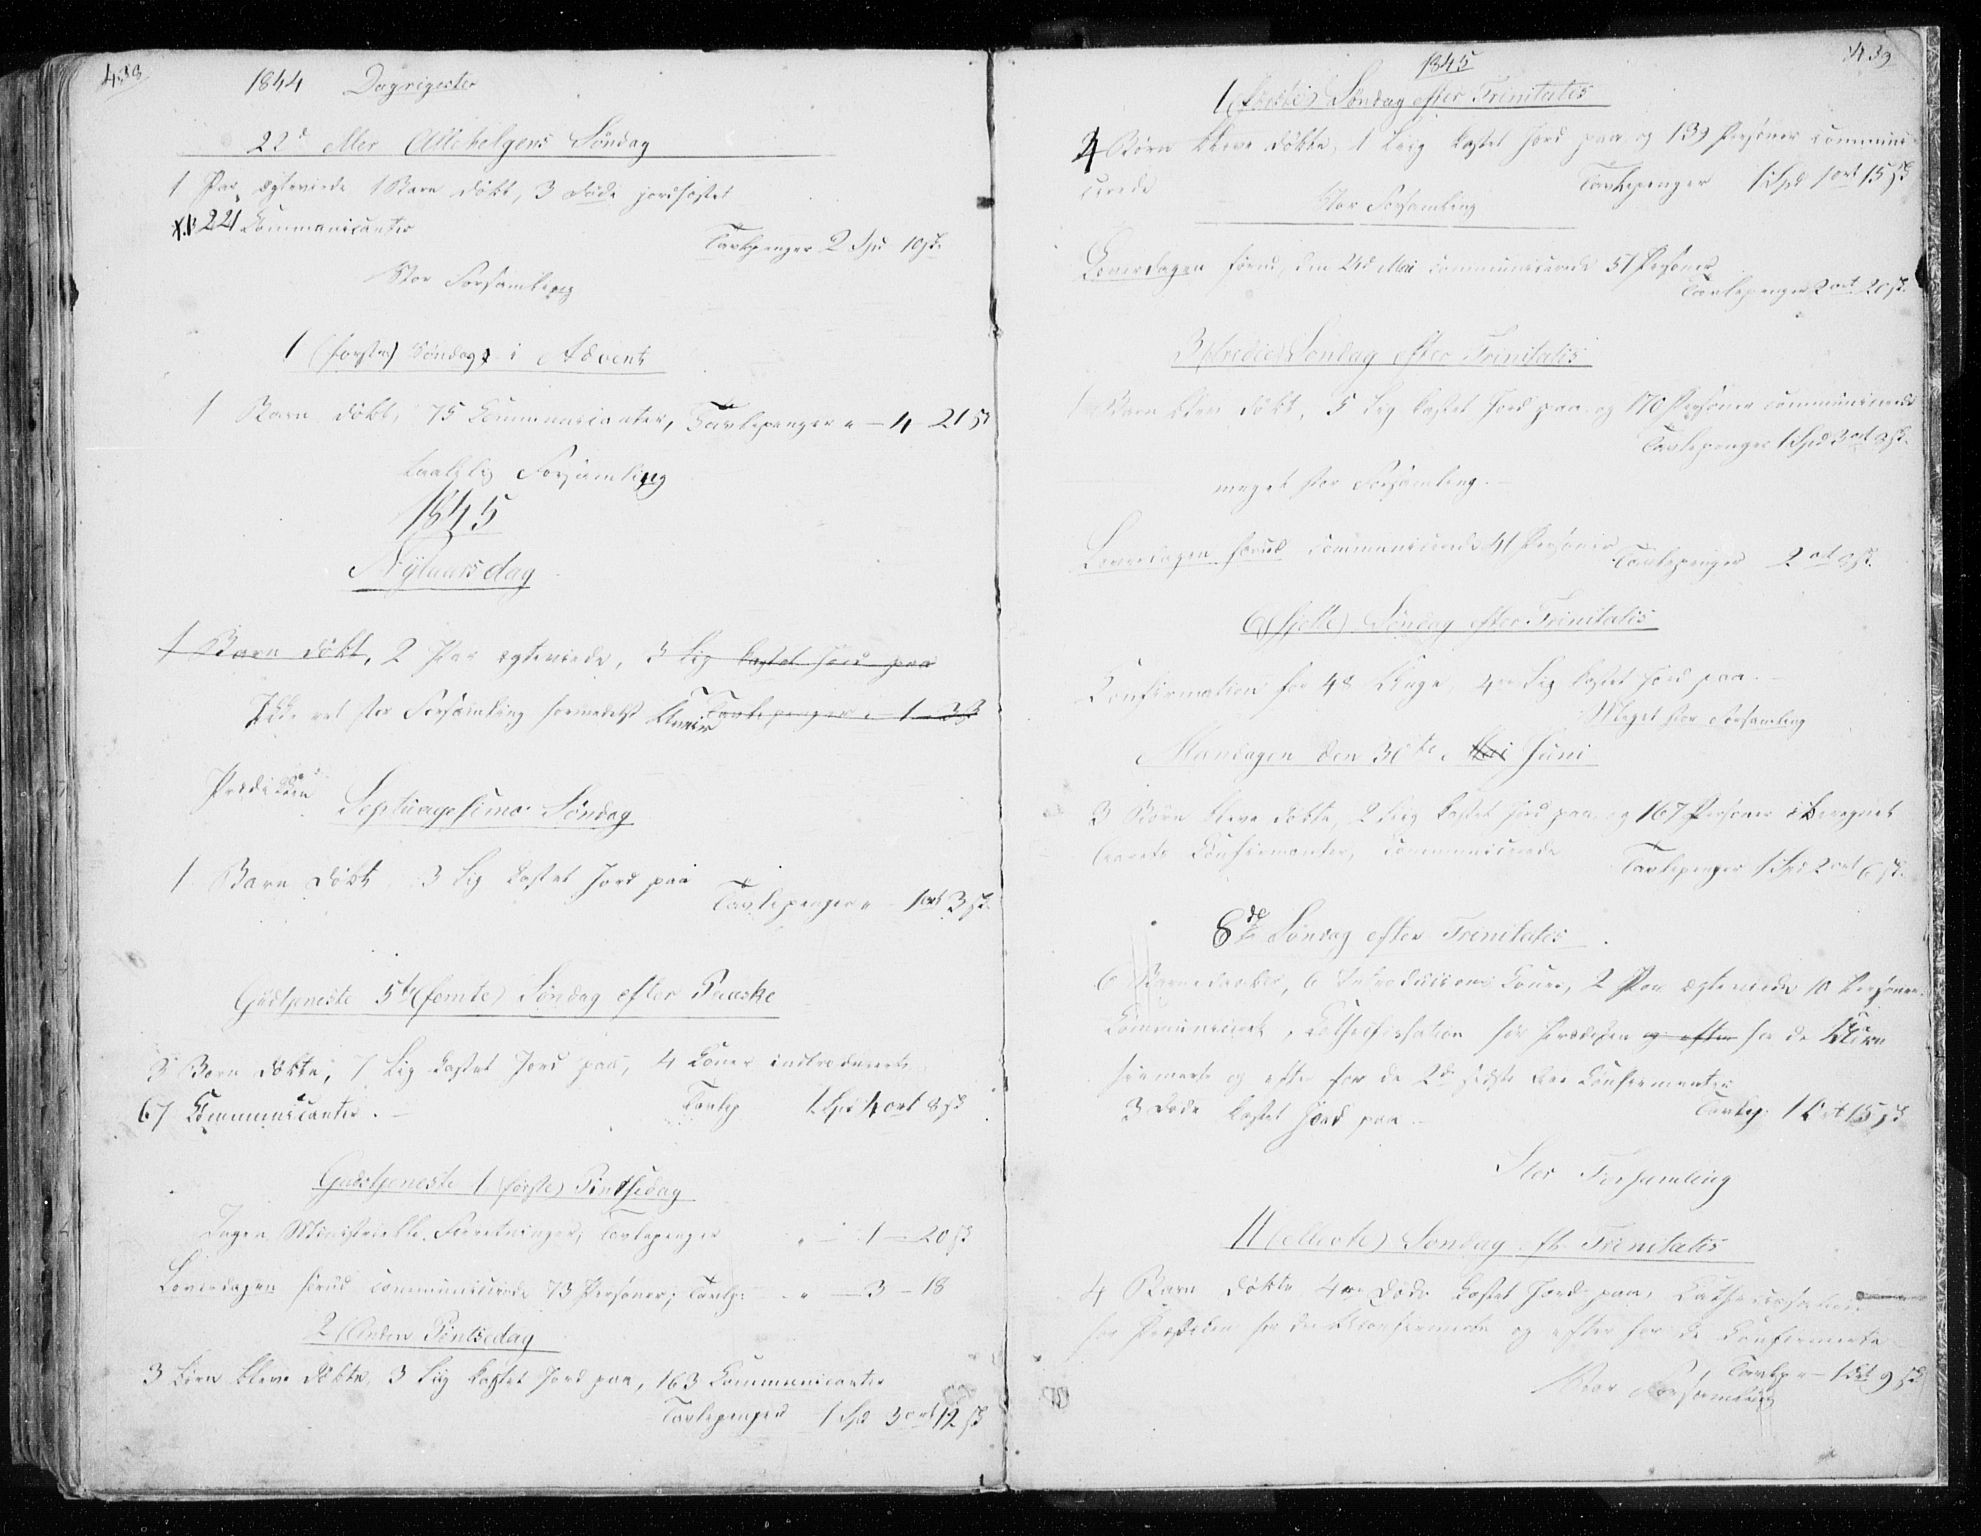 438
1844 Dagregister
22d eller Allehelgens Søndag
1 Par egteviede 1 Barn døbt, 3 Døde jordfæstet
221 Communicanter
Tavlepenger 2 Spd 10 sk.
Stor Forsamling
1 (første) Søndag i Advent
1 Barn døbt, 75 Communicanter, Tavlepenger " – 4 – 21 sk
taalelig Forsamling
1845
Nytaarsdag
1 Barn døbt, 2 Par egteviede, 3 Lig kastet Jord paa
Ikke ret stor Forsamling formedelst
Tavlepenger " 1 – 3 sk
Septuagesima Søndag
1 Barn døbt 3 Lig kastet Jord paa
Tavlepenger " 1 ort 3 sk.
Gudstjeneste 5te (femte) Søndag efter Paaske
3 Børn døbte, 7 Lig kastet Jord paa, 4 Koner introducerede
67 Communicanter. –
Tavlep 1 Spd 4 ort 8 sk
Gudstjeneste 1 (første) Pintsedag
Ingen Ministerielle Forretninger, Tavlepenger " – 1 – 20 sk
Løverdagen forud communicerede 73 Personer; Tavlp: " – 3 – 18
2 (Anden) Pintsedag
3 Børn bleve døbte, 3 Liig kastet Jord paa, 163 Communicanter
Tavlepenger 1 Spd 3 ort 12 sk
439
1845
1 (første) Søndag efter Trinitatis
4 Børn bleve døbte, 1 Liig kastet Jord paa og 139 Personer communi-
cerede
Tavlepenger 1 Spd 1 ort 15 sk
Stor Forsamling
Løverdagen forud, den 24d Mai communicerede 57 Personer
Tavlepenger 2 ort 20 sk.
3 (tredie) Søndag efter Trinitatis
1 Barn blev døbt, 5 Lig kastet Jord paa og 170 Personer communicerede
Tavlepenger 1 Spd 3 ort 8 sk.
meget stor Forsamling. –
Løverdagen forud communicerede 41 Personer
Tavlepenger 2 ort 8 sk.
6 (sjette) Søndag efter Trinitatis
Confirmation for 48 Unge, 4re Lig kastet Jord paa. –
Meget stor Forsamling
Mandagen den 30te Mai Juni
3 Børn bleve døbte, 2 Liig kastet Jord paa og 167 Personer iberegnet
Confirmanter, communicerede
Tavlepenger 1 Spd 2 ort 6 sk.
8de Søndag efter Trinitatis
6 Barnedaaber, 6 Introductions Koner, 2 Par egteviede 10 Personer
Communiceret, Kathechisation før Prædiken og efter for de
og efter for de 2de sidste Confirmanter
3 Døde kastet Jord paa –
Tavlep: 1 ort 15 sk
Stor Forsamling
11 (ellevte) Søndag eft. Trinitatis
4 Børn døbte 4re Døde kastet Jord paa, Cathechisation
før Prædiken for de Uconfirmerte og efter for de Confirmerte
Tavlp " – 1 ort 9 sk
Stor Forsamling